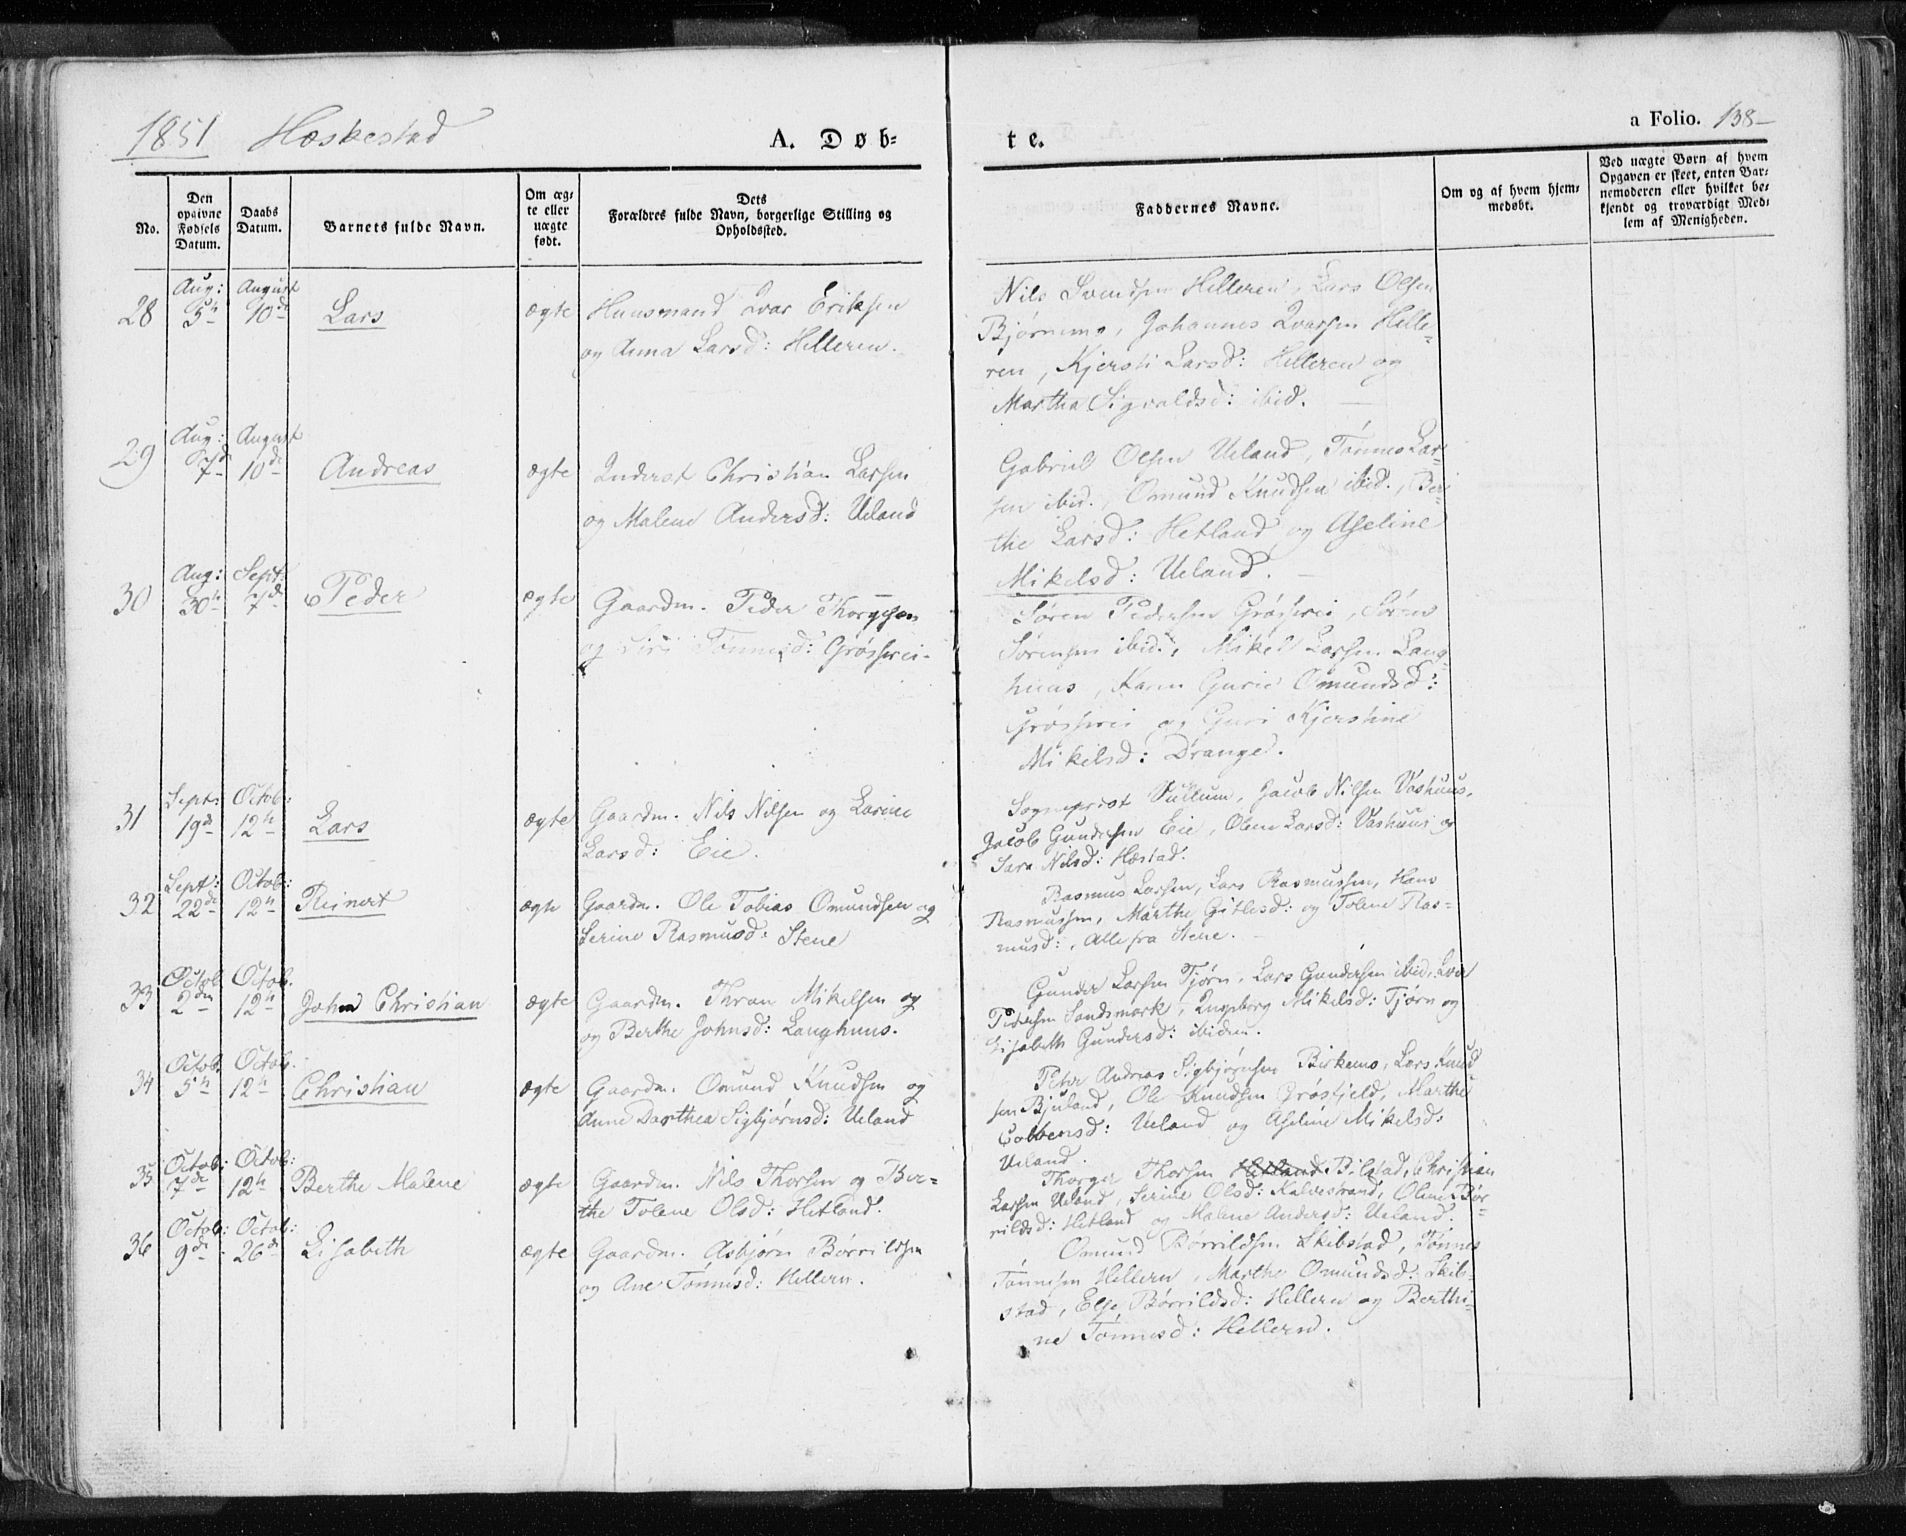 1851 Hæskestad
A. Døb-
te.
a Folio. 138
No.
Den opgivne Fødsels Datum.
Daabs Datum.
Barnets fulde Navn.
Om ægte eller uægte født.
Dets Forældres fulde Navn, borgerlige Stilling og Opholdssted.
Faddernes Navne.
Om og af hvem hjemmedøbt.
Ved uægte Børn af hvem Opgaven er skeet, enten Barnemoderen eller hvilket bekjendt og troværdigt Medlem af Menigheden.
28 Aug: 5te August 10de Lars ægte Huusmand Ivar Eriksen
og Anna Larsd: Helleren.
Nils Svendsen Helleren, Lars Olsen
Bjørnemo, Johannes Ivarsen Helle-
ren, Kjersti Larsd: Helleren og
Martha Sigvaldsd: ibid.
29 Aug: 7de August 10de Andreas ægte Inderst Christian Larsen
og Malene Andersd: Ueland
Gabriel Olsen Ueland, Tønnes Lar-
sen ibid., Omund Knudsen ibid., Ber-
the Larsd: Hetland og Aseline
Mikelsd: Ueland.
30 Aug: 30te Sept: 7de Peder ægte Gaardm. Peder Thorgersen
og Siri Tønnesd: Grøsfrei.
Søren Pedersen Grøsfrei, Søren
Sørensen ibid., Mikel Larsen Lang-
huus, Karen Gurie Omundsd:
Grøsfrei og Guri Kjerstine
Mikelsd: Drange.
31 Sept: 19de Octob: 12te Lars ægte Gaardm. Nils Nilsen og Larine
Larsd: Eie.
Sogneprest Vullum, Jacob Nilsen Vashuus,
Jacob Gundersen Eie, Olene Larsd: Vashuus og
Sara Nilsd: Hæstad.
32 Sept: 22de Octob: 12te Reinert ægte Gaardm. Ole Tobias Omundsen og
Serine Rasmusd: Stene
Rasmus Larsen, Lars Rasmussen, Hans
Rasmussen, Marthe Gitlesd: og Tolene Ras-
musd:, Alle fra Stene.
33 Octob 2den Octob. 12te John Christian ægte Gaardm. Thron Mikelsen og
og Berthe Johnsd: Langhuus.
Gunder Larsen Tjørn, Lars Gundersen ibid, Ivar
Pedersen Sandsmark, Ingeborg Mikelsd: Tjørn og
Lisabeth Gundersd: ibidem.
34 Octob. 5te Octob: 12te Christian ægte Gaardm. Omund Knudsen og
Anne Dorthea Sigbjørnsd: Ueland
Peter Andreas Sigbjørnsen Birkemo, Lars Knud
sen Bjuland, Ole Knudsen Grøsfjeld, Marthe
Colbensd: Ueland og Aseline Mikelsd:
Ueland.
35 Octob: 7de Octob: 12te Berthe Malene ægte Gaardm. Nils Thorsen og Ber-
the Tolene Olsd: Hetland.
Thorger Thorsen Hetland Bilstad, Christian
Larsen Ueland, Serine Olsd: Kalvestrand, Olene Bør-
rildsd: Hetland og Malene Andersd: Ueland.
36 Octob: 9de Octob: 26de Lisabeth ægte Gaardm. Asbjørn Børrildsen
og Ane Tønnesd: Hellern.
Omund Børrildsen Skibstad, Tønnes
Tønnesen Hellern, Marthe Omundsd: Skib-
stad, Else Børrildsd: Hellern og Berthi-
ne Tønnesd: Hellern.